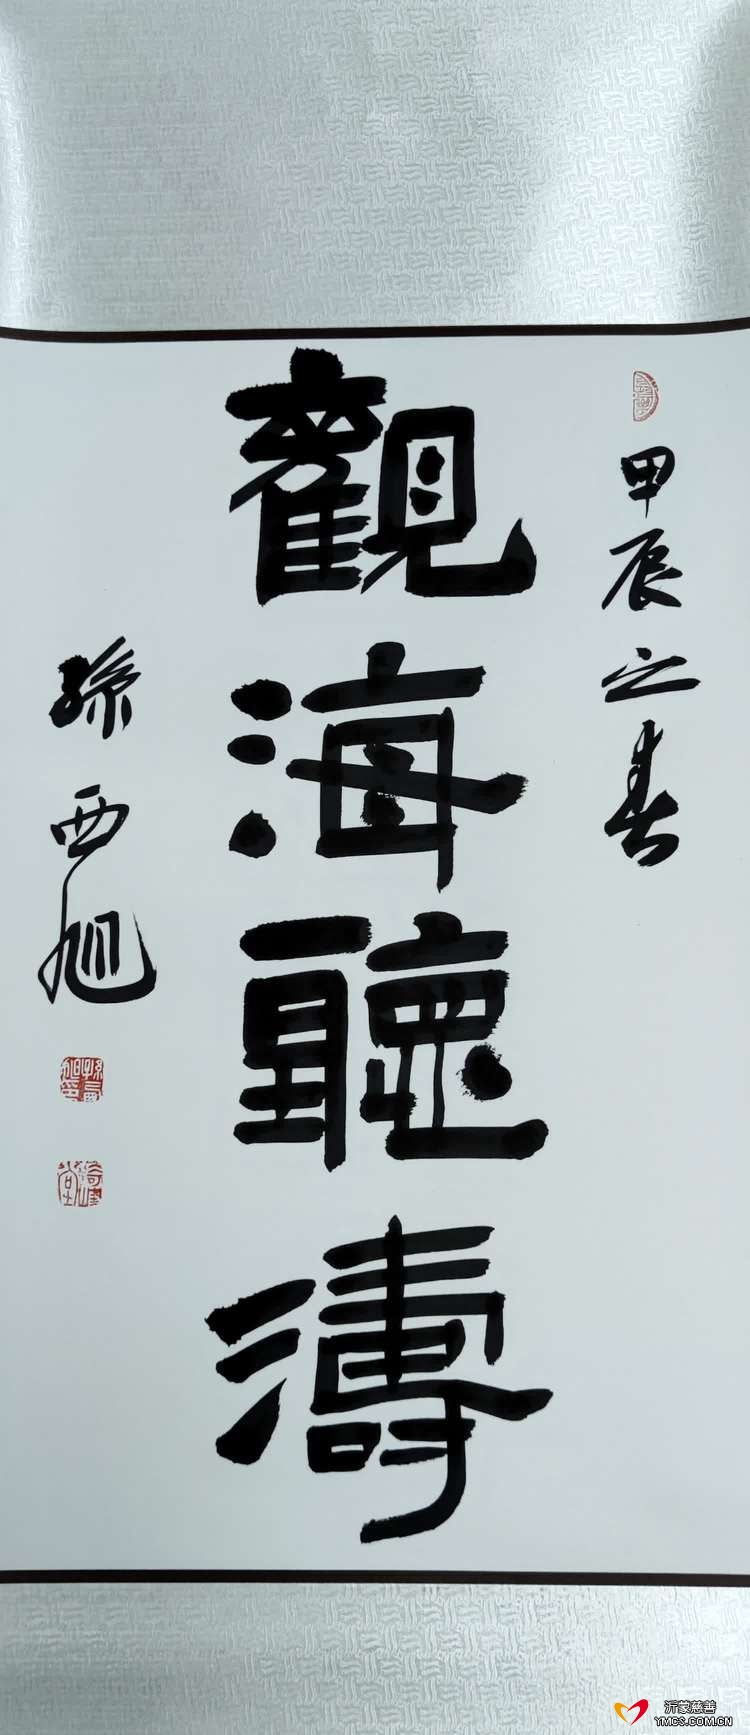 甲辰之春
觀海聽濤
孫西旭
沂蒙慈善
YMCS.COM.CN